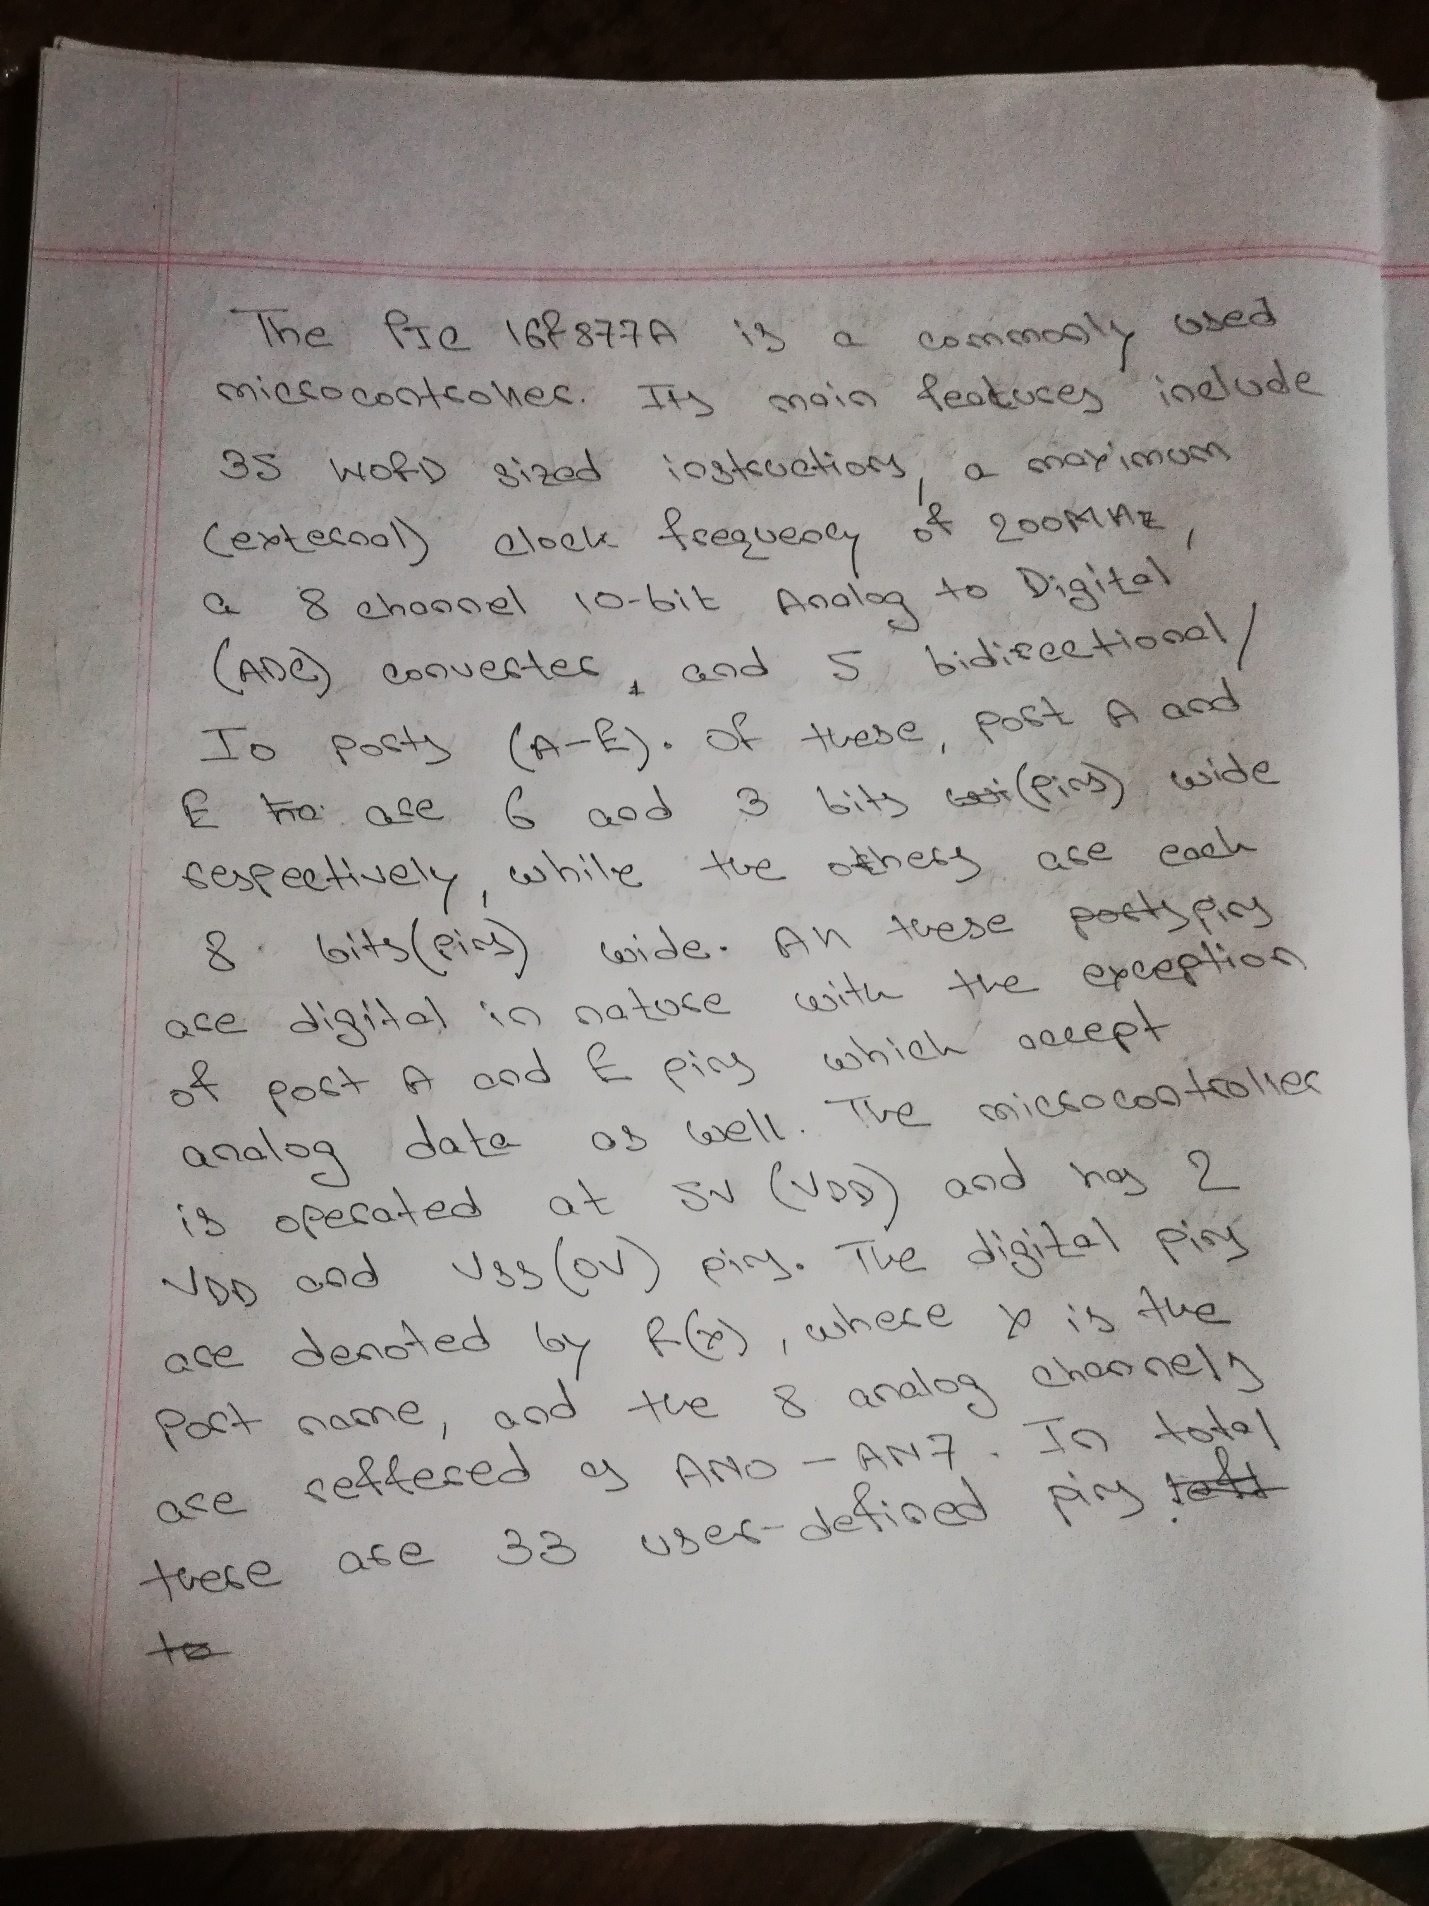 The PIC 16F877A is a commonly used
microcontroller. Its main features include
35 WORD sized instructions, a maximum
(external) clock frequency of 200MHz,
a 8 channel 10-bit Analog to Digital
(ADC) converter, and 5 bidirectional/
IO ports (A-E). Of these, port A and
E are 6 and 3 bits (pins) wide
respectively, while the others are each
8 bits(pins) wide. All these ports pins
are digital in nature with the exception
of port A and E pins which accept
analog data as well. The microcontroller
is operated at 5V (VDD) and has 2
VDD and VSS(0V) pins. The digital pins
are denoted by R(x), where x is the
Port name, and the 8 analog channels
are reffered as AN0 - AN7. In total
there are 33 user-defined pins
to